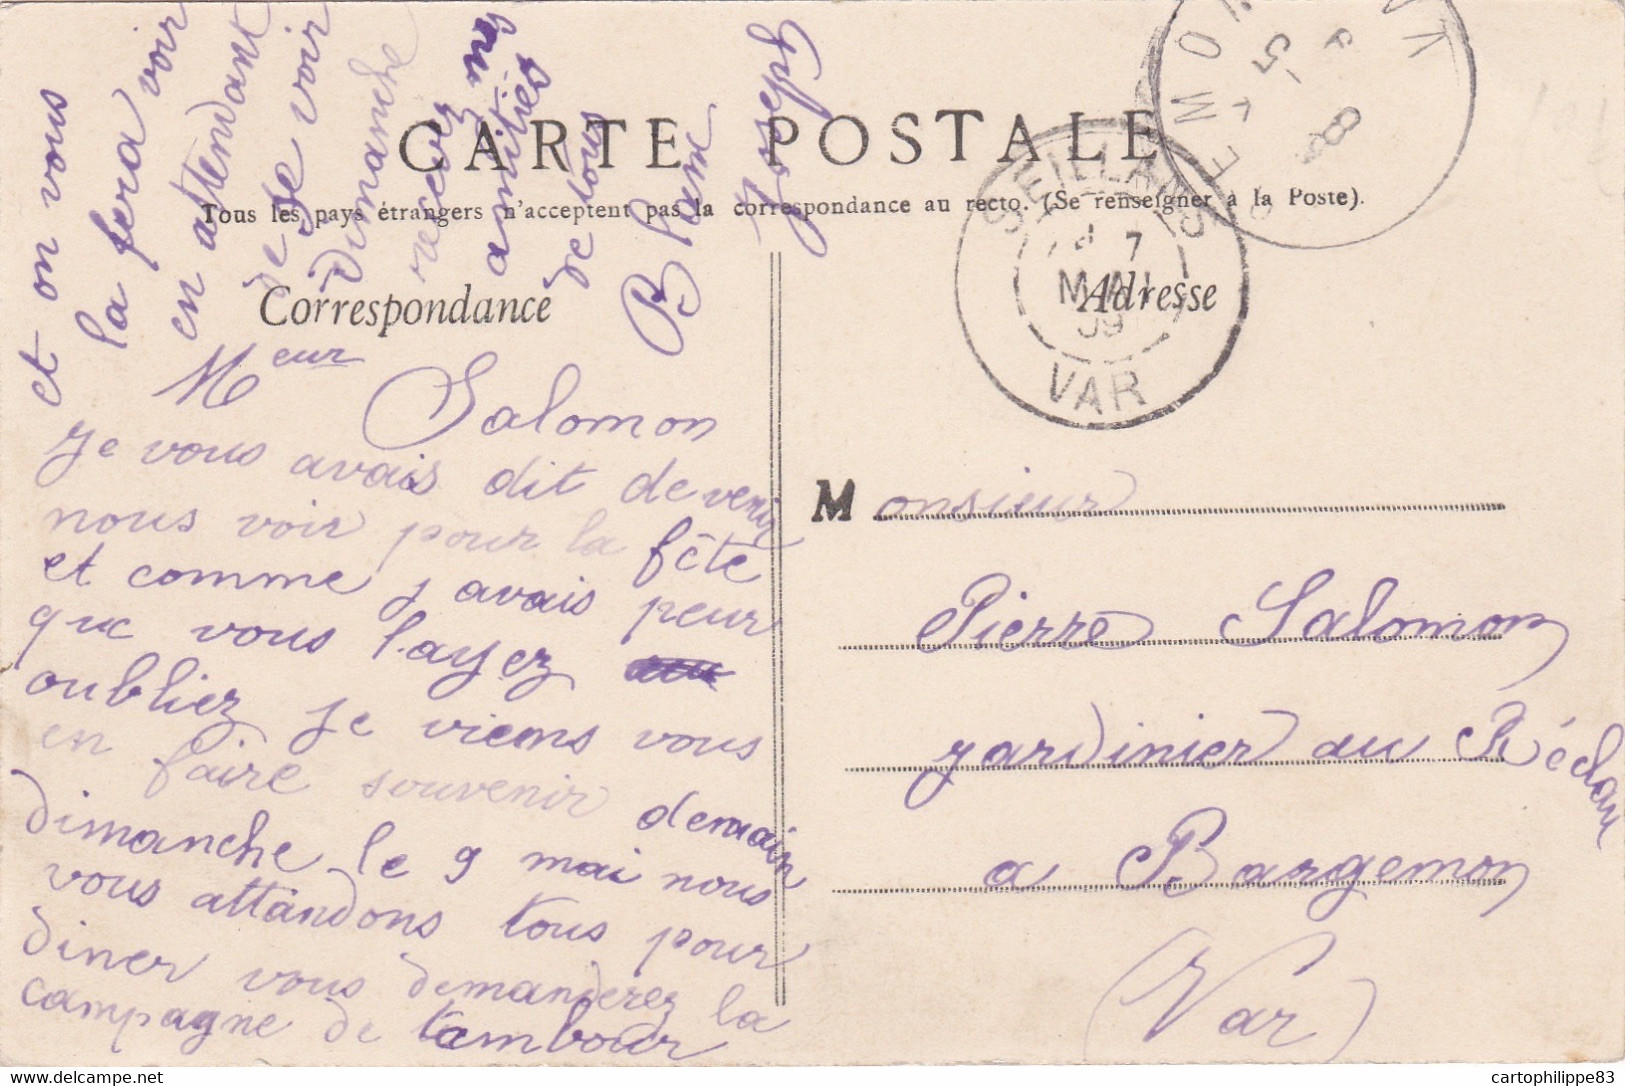 CARTE POSTALE
Tous les pays étrangers n'acceptent pas la correspondance au recto. (Se renseigner à la Poste).
Correspondance
Adresse
Meur Salomon
je vous avais dit de venir
nous voir pour la fête
et comme j avais peur
que vous l.ayez
oubliez je viens vous
en faire souvenir demain
dimanche le 9 mai nous
vous attandons tous pour
diner vous demanderez la
campagne de tambour
et on vous
la fera voir
en attendant
de se voir
Dimanche
recevez mes
amitiés
de tous
Blanc
Joseph
Monsieur
Pierre Salomon
jardinier au Réclau
a Bargemon
(Var)
SEILLANS
7
MAI
09
VAR
8
5
www.delcampe.net
cartophilippe83